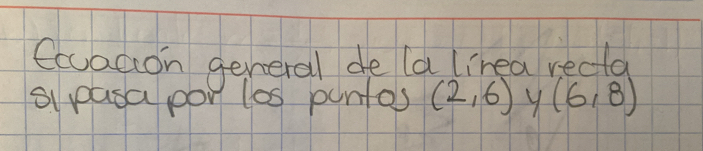 Ecuación general de la línea recta
si pasa por los puntos (2,6) y (6,8)